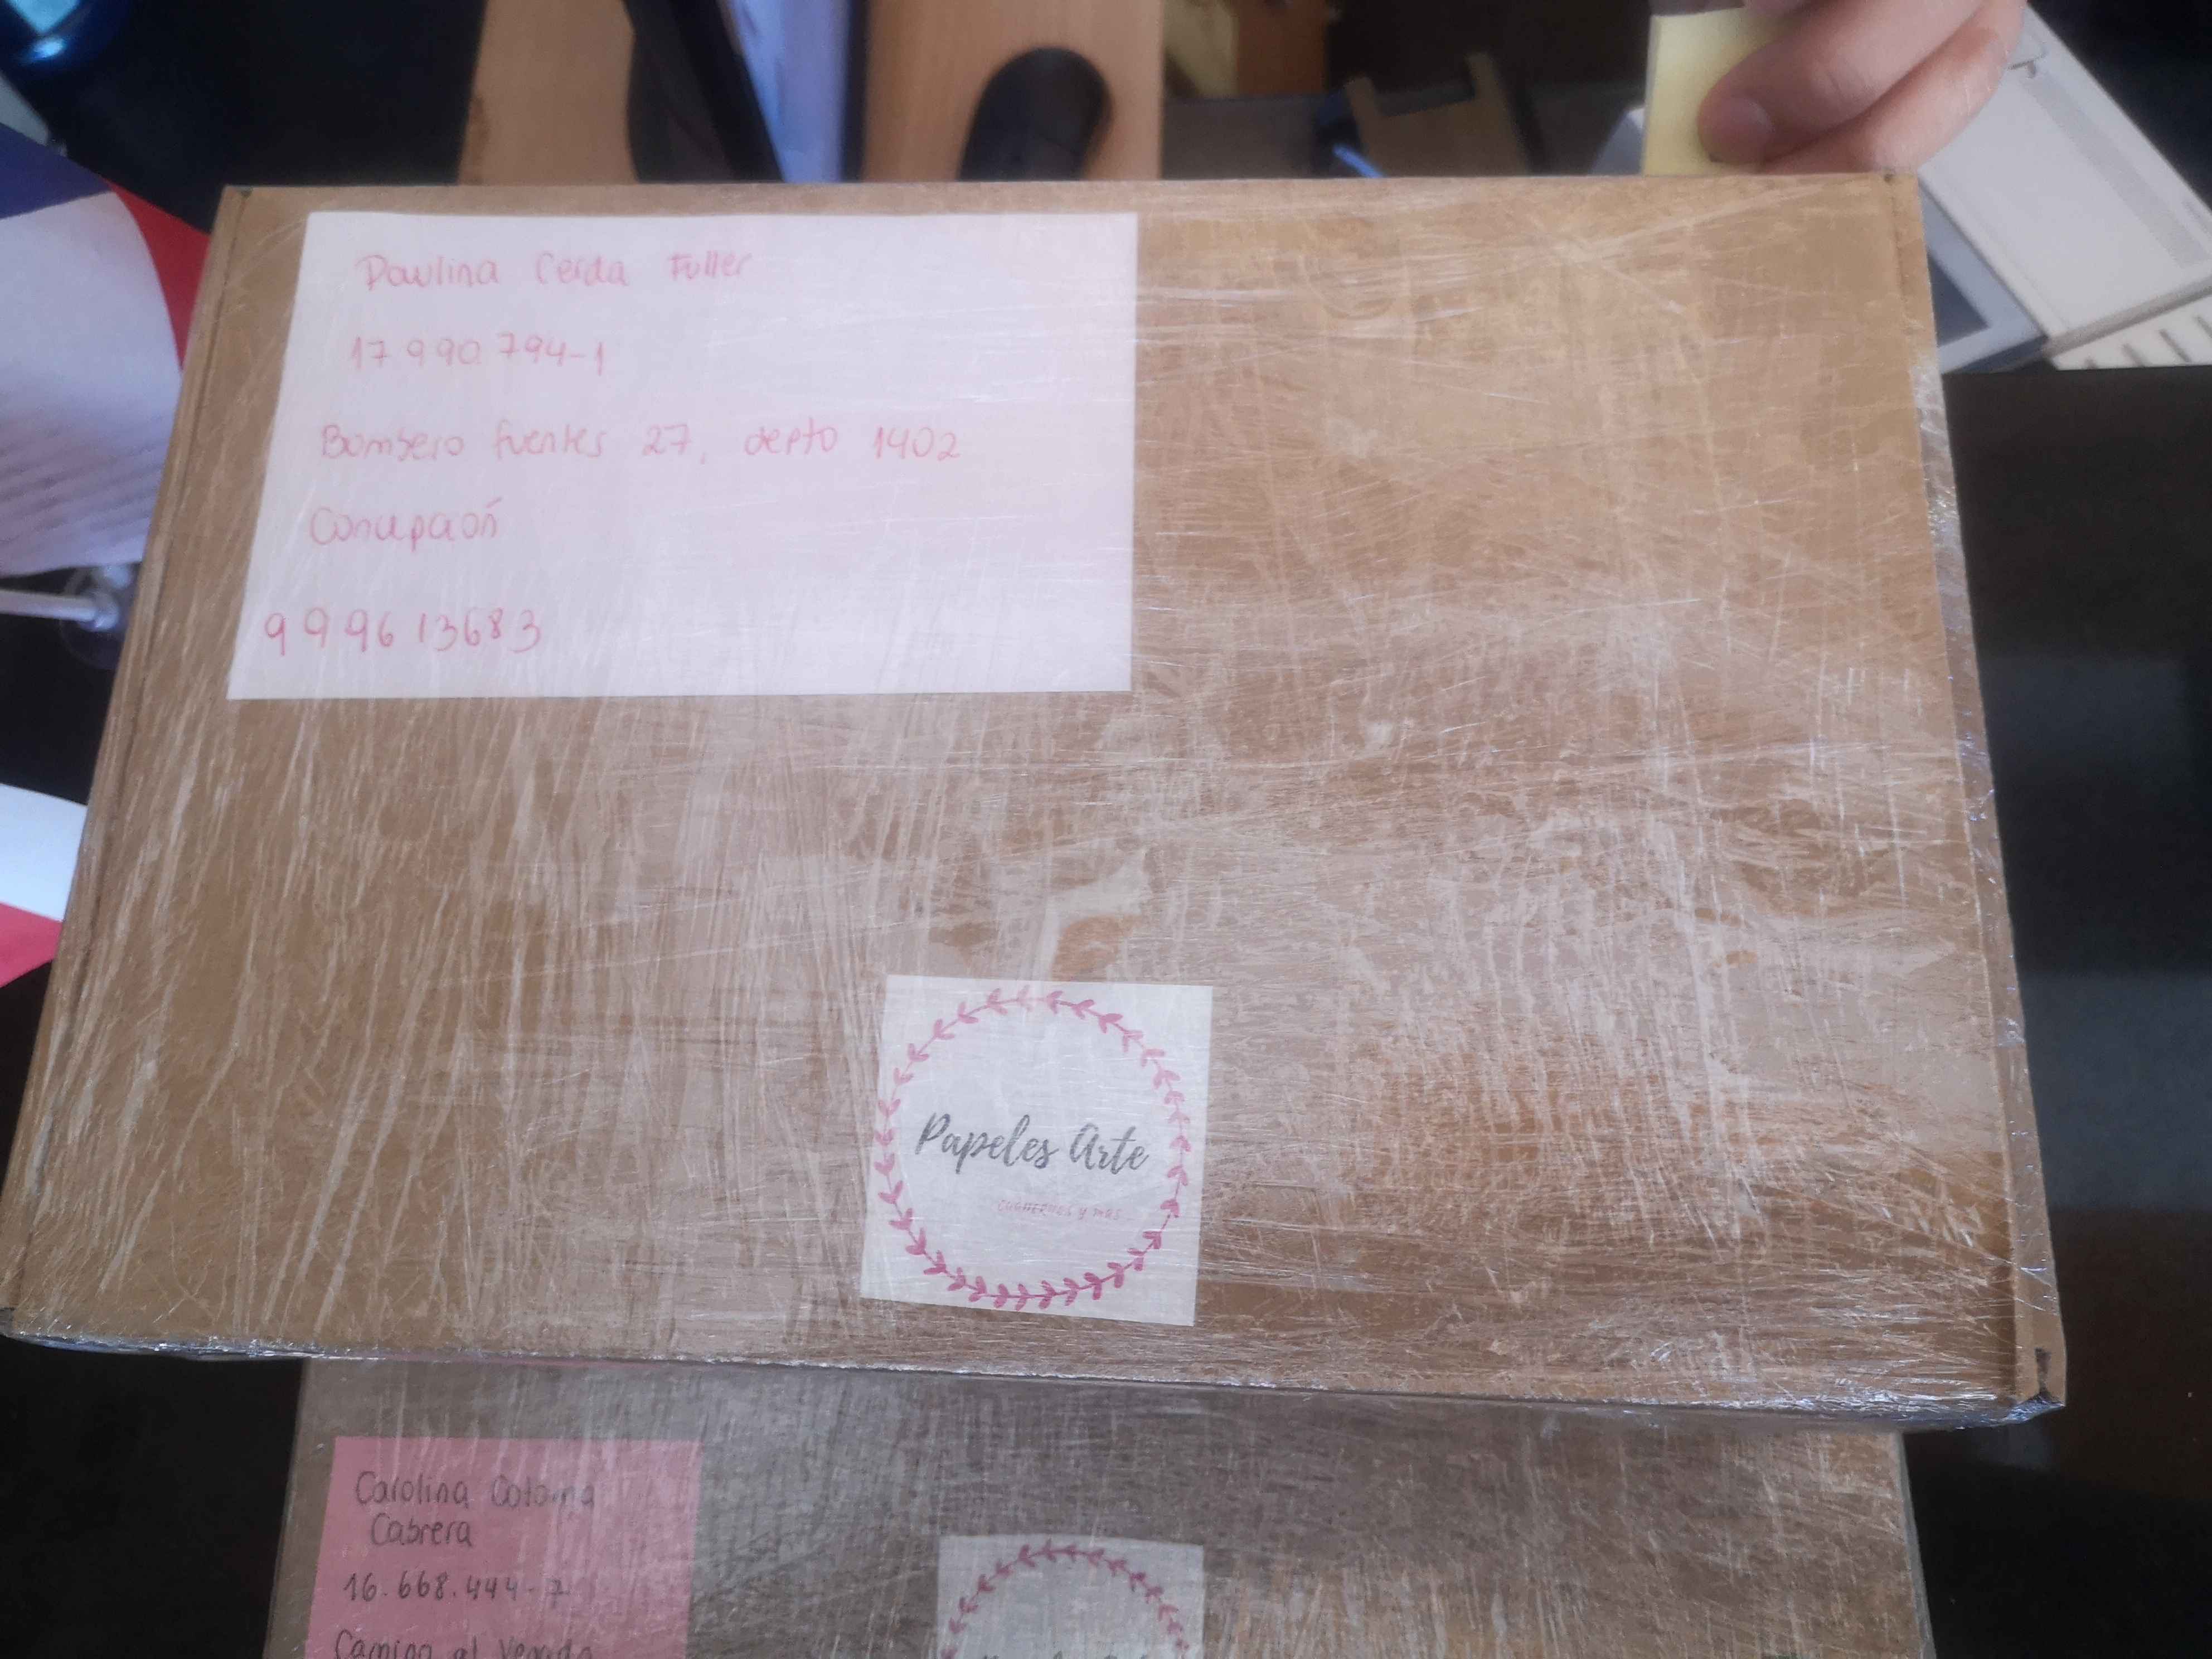 Paulina Cerda Fuller
17 990.794-1
Bombero fuentes 27, depto 1402
Concepción
999613683
Papeles Arte
CUADERNOS Y MAS
Carolina Coloma
Cabrera
16.668.444-7
Camino al Venado